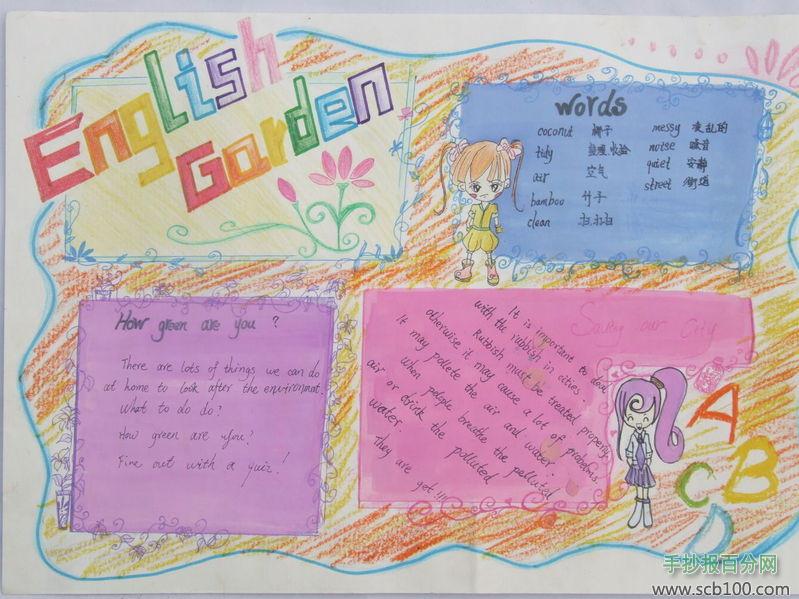 English
Garden
words
coconut 椰子
tidy 整理 收拾
air 空气
bamboo 竹子
clean 打扫
messy 凌乱的
noise 噪音
quiet 安静
street 街道
How green are you ?
There are lots of things we can do
at home to look after the environmat.
What to do do?
How green are you?
Fine out with a quiz.!
Saving our City
It is important to deal
with the rubbish in cities.
Rubbish must be treated properly
otherwise it may cause a lot of problems.
It may pollete the air and water.
When people breathe the polluted
air or drink the polluted
water.
They are
get !!!
A
B
C
D
手抄报百分网
www.scb100.com